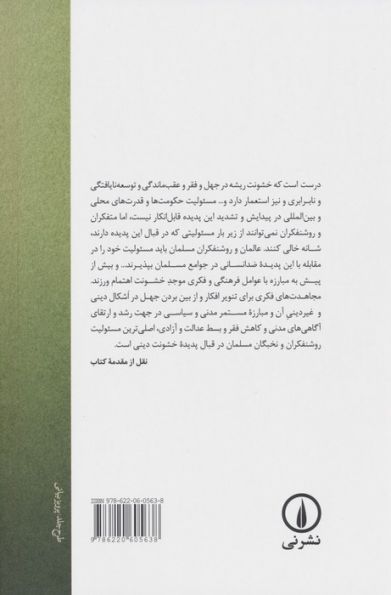 درست است که خشونت ریشه در جهل و فقر و عقب‌ماندگی و توسعه‌نایافتگی
و نابرابری و نیز استعمار دارد و.. مسئولیت حکومت‌ها و قدرت‌های محلی
و بین‌المللی در پیدایش و تشدید این پدیده قابل‌انکار نیست، اما متفکران
و روشنفکران نمی‌توانند از زیر بار مسئولیتی که در قبال این پدیده دارند،
شانه خالی کنند. عالمان و روشنفکران مسلمان باید مسئولیت خود را در
مقابله با این پدیدهٔ ضدانسانی در جوامع مسلمان بپذیرند.. و بیش از
پیش به مبارزه با عوامل فرهنگی و فکری موجد خشونت اهتمام ورزند.
مجاهدت‌های فکری برای تنویر افکار و از بین بردن جهل در اَشکال دینی
و غیردینی آن و مبارزهٔ مستمر مدنی و سیاسی در جهت رشد و ارتقای
آگاهی‌های مدنی و کاهش فقر و بسط عدالت و آزادی، اصلی‌ترین مسئولیت
روشنفکران و نخبگان مسلمان در قبال پدیدهٔ خشونت دینی است.
نقل از مقدمهٔ کتاب
طرح جلد: پرویز بیانی
ISBN 978-622-06-0563-8
9 786220 605638
نشرنی